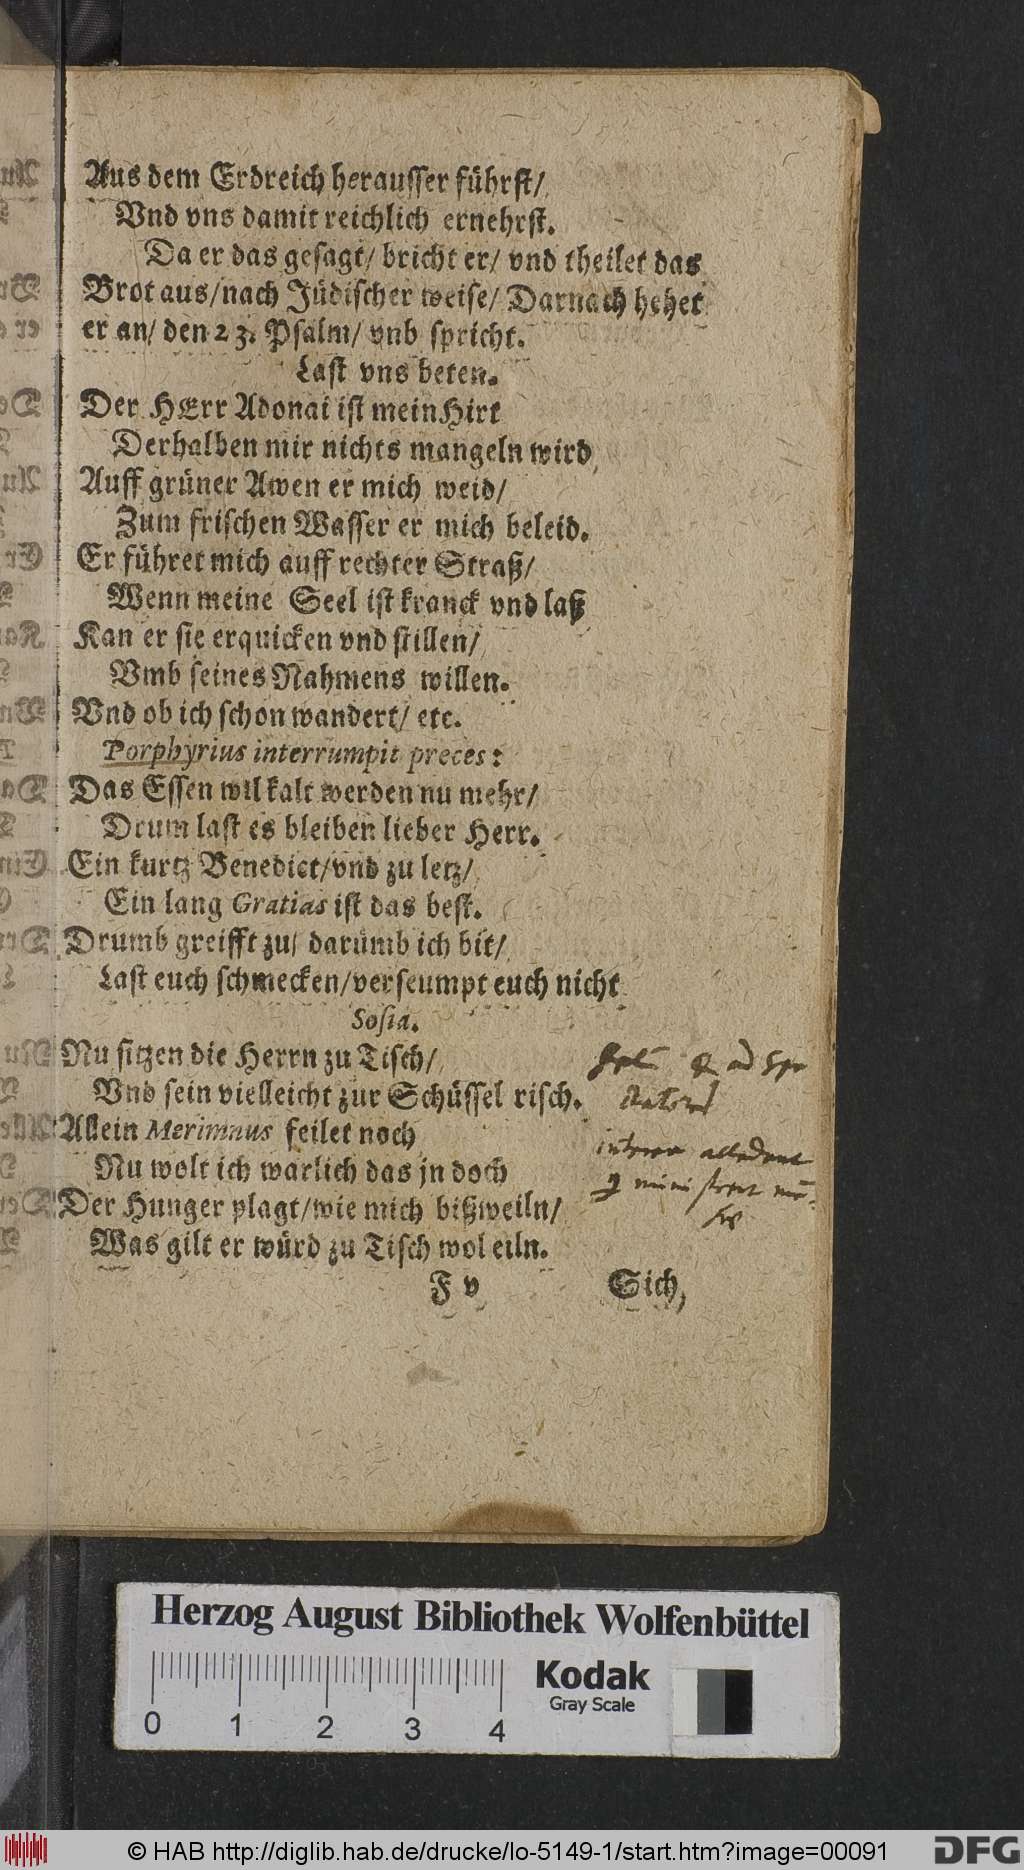 Aus dem Erdreich herausser führst/
Vnd vns damit reichlich ernehrst.
Da er das gesagt/ bricht er/ vnd theilet das
Brot aus/nach Jüdischer weise/ Darnach hehet
er an/ den 23. Psalm/ vnb spricht.
Last vns beten.
Der HErr Adonai ist mein Hirt
Derhalben mir nichts mangeln wird
Auff grüner Awen er mich weid/
Zum frischen Wasser er mich beleid.
Er führet mich auff rechter Straß/
Wenn meine Seel ist kranck vnd laß
Kan er sie erquicken vnd stillen/
Vmb seines Nahmens willen.
Vnd ob ich schon wandert/ etc.
Porphyrius interrumpit preces:
Das Essen wil kalt werden nu mehr/
Drum last es bleiben lieber Herr.
Ein kurtz Benedict/vnd zu letz/
Ein lang Gratias ist das best.
Drumb greifft zu/ darumb ich bit/
Last euch schmecken/verseumpt euch nicht
Sosia.
Nu sitzen die Herrn zu Tisch/
Vnd sein vielleicht zur Schüssel risch.
Allein Merimnus feilet noch
Nu wolt ich warlich das jn doch
Der Hunger plagt/wie mich bißweiln/
Was gilt er würd zu Tisch wol eiln.
F v Sich,
Herzog August Bibliothek Wolfenbüttel
Kodak
Gray Scale
0 1 2 3 4
© HAB http://diglib.hab.de/drucke/lo-5149-1/start.htm?image=00091
DFG